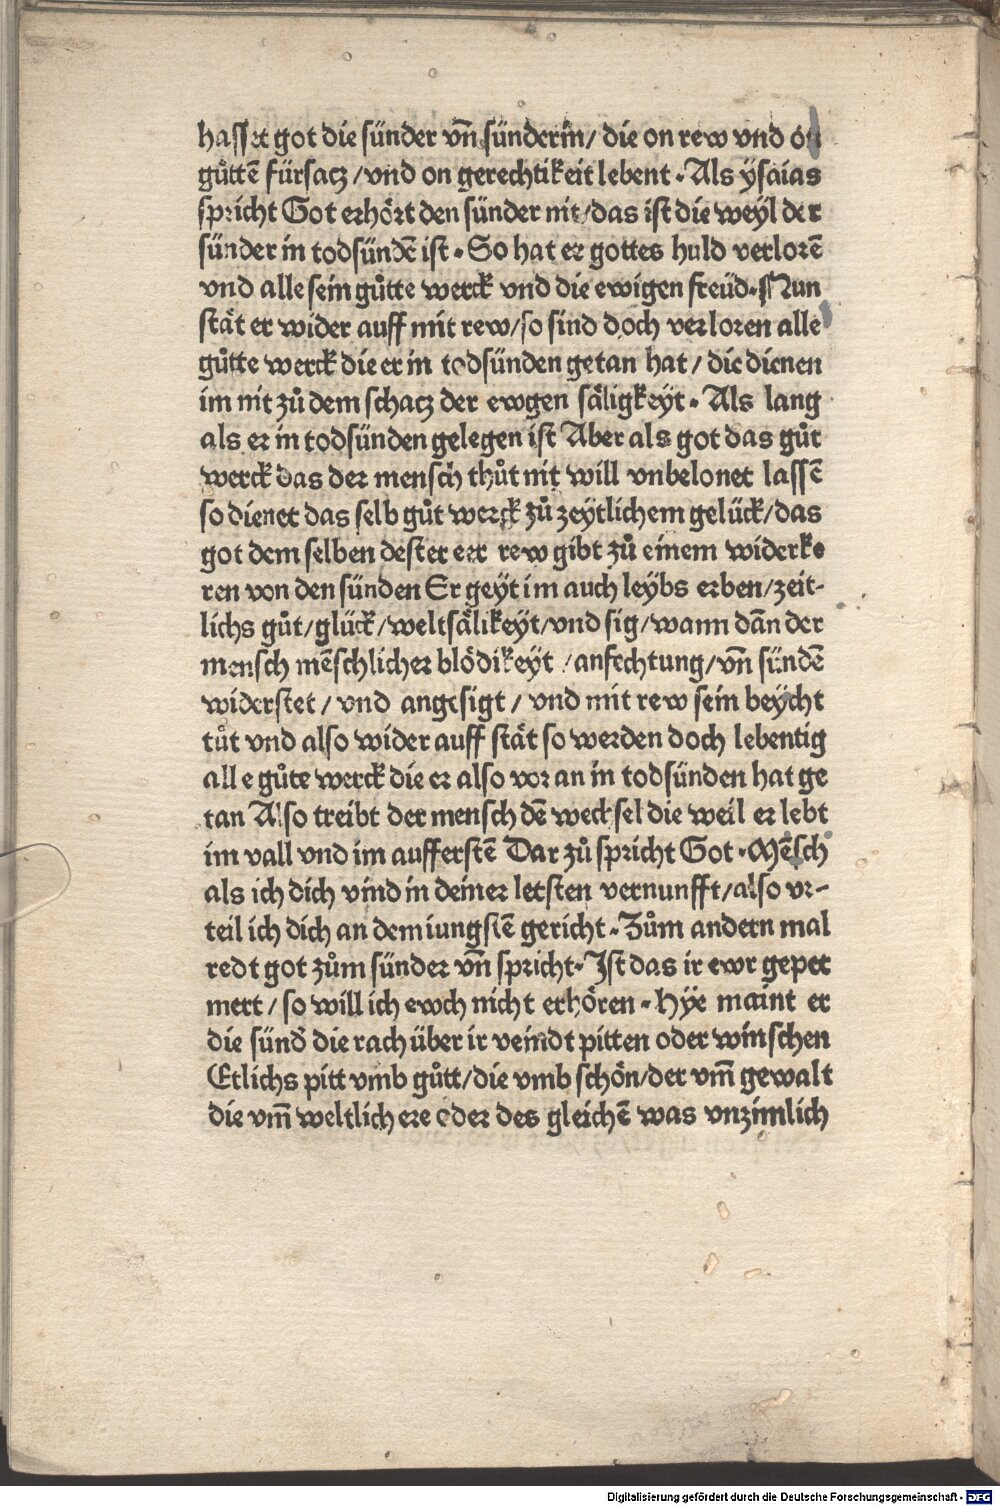 hasset got die sünder vn̄ sünderin/ die on rew vnd on
gůttē fürsacz /vnd on gerechtikeit lebent. Als ysaias
spricht Got erhört den sünder nit/das ist die weyl der
sünder in todsündē ist. So hat er gottes huld verlorē
vnd alle sein gůtte werck vnd die ewigen freüd. Nun
stät er wider auff mit rew/so sind doch verloren alle
gůtte werck die er in todsünden getan hat / die dienen
im nit zů dem schacz der ewgen säligkeyt. Als lang
als er in todsünden gelegen ist Aber als got das gůt
werck das der mensch thůt nit will vnbelonet lassē
so dienet das selb gůt werck zů zeytlichem gelück/das
got dem selben dester eer rew gibt zů einem widerke
ren von den sünden Er geyt im auch leybs erben/zeit-
lichs gůt/glück/weltsälikeyt/vnd sig/wann dān der
mensch mēschlicher blödikeyt /anfechtung/vn̄ sündē
widerstet / vnd angesigt / vnd mit rew sein beycht
tůt vnd also wider auff stät so werden doch lebentig
all e gůte werck die er also vor an in todsünden hat ge
tan Also treibt der mensch dē wechsel die weil er lebt
im vall vnd im aufferstē Dar zů spricht Got. Mēsch
als ich dich vind in deiner letsten vernunfft/also vr-
teil ich dich an dem iungstē gericht. Zům andern mal
redt got zům sünder vn̄ spricht. Ist das ir ewr gepet
mert / so will ich ewch nicht erhören. Hye maint er
die sünd̄ die rach über ir veindt pitten oder winschen
Etlichs pitt vmb gůtt/die vmb schön/der vm̄ gewalt
die vm̄ weltlich ere oder des gleichē was vnzimlich
Digitalisierung gefördert durch die Deutsche Forschungsgemeinschaft - DFG